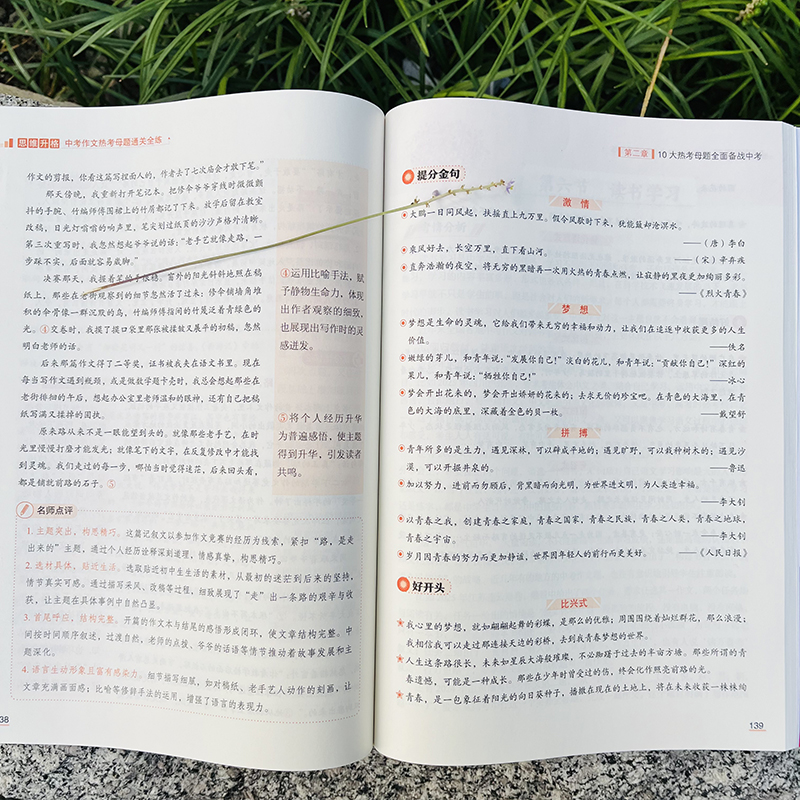 思维升格 中考作文热考母题通关全练
作文的剪报，你看这篇写拔面人的，作者去了七次庙会才放下笔。”
那天傍晚，我重新打开笔记本。把修伞爷爷穿线时微微颤
抖的手腕、竹编师傅围裙上的竹屑都记了下来。放学后留在教室
改稿，日光灯嗡嗡的响声里，笔尖划过纸页的沙沙声格外清晰。
第三次重写时，我忽然想起爷爷说的话：“老手艺就像走路，一
步踩不实，后面就容易崴脚。”
决赛那天，我握着笔的手很稳。窗外的阳光斜斜地照在稿
纸上，那些在老街观察到的细节忽然活了过来：修伞铺墙角堆
积的伞骨像一群沉默的鸟，竹编师傅指间的竹篾泛着青绿色的
光。④交卷时，我摸了摸口袋里那张被揉皱又展平的初稿，忽然
明白老师的话。
后来那篇作文得了二等奖，证书被我夹在语文书里。现在
每当写作文遇到瓶颈，或是做数学题卡壳时，我总会想起那些在
老街徘徊的午后，想起办公室里老师温和的眼神，还有自己把稿
纸写满又揉掉的固执。
原来路从来不是一眼能望到头的。就像那些老手艺，在时
光里慢慢打磨才能发光；就像笔下的文字，在反复修改中才能找
到灵魂。我们走过的每一步，哪怕当时觉得迷茫，后来回头看，
都是铺就前路的石子。⑤
④运用比喻手法，赋
予静物生命力，体现
出作者观察的细致，
也展现出写作时的灵
感迸发。
⑤将个人经历升华
为普遍感悟，使主题
得到升华，引发读者
共鸣。
名师点评
1. 主题突出，构思精巧。这篇记叙文以参加作文竞赛的经历为线索，紧扣“路，是走
出来的”主题，通过个人经历诠释深刻道理，情感真挚，构思精巧。
2. 选材具体，贴近生活。选取贴近初中生生活的素材，从最初的迷茫到后来的坚持，
情节真实可感。通过描写采风、改稿等过程，细致展现了“走”出一条路的艰辛与收
获，让主题在具体事例中自然凸显。
3. 首尾呼应，结构完整。开篇的作文本与结尾的感悟形成闭环，使文章结构完整。中
间按时间顺序叙述，过渡自然，老师的点拨、爷爷的话语等情节推动着故事发展和主
题深化。
4. 语言生动形象且富有感染力。细节描写细腻，如对稿纸、老手艺人动作的刻画，让
文章充满画面感；比喻等修辞手法的运用，增强了语言的表现力。
38
第二章 10 大热考母题全面备战中考
提分金句
激 情
大鹏一日同风起，扶摇直上九万里。假令风歇时下来，犹能簸却沧溟水。
——（唐）李白
乘风好去，长空万里，直下看山河。 ——（宋）辛弃疾
直奔浩瀚的夜空，将无穷的黑暗再一次用火热的青春点燃，让寂静的黑夜更加绚丽多彩。
——《烈火青春》
梦 想
梦想是生命的灵魂，它给我们带来无穷的幸福和动力，让我们在追逐中收获更多的人生
价值。 ——佚名
嫩绿的芽儿，和青年说：“发展你自己！”淡白的花儿，和青年说：“贡献你自己！”深红的
果儿，和青年说：“牺牲你自己！” ——冰心
梦会开出花来的，梦会开出娇妍的花来的；去求无价的珍宝吧。在青色的大海里，在青
色的大海的底里，深藏着金色的贝一枚。 ——戴望舒
拼 搏
青年所多的是生力，遇见深林，可以辟成平地的；遇见旷野，可以栽种树木的；遇见沙
漠，可以开掘井泉的。 ——鲁迅
加以努力，进前而勿顾后，背黑暗而向光明，为世界进文明，为人类造幸福。
——李大钊
以青春之我，创建青春之家庭，青春之国家，青春之民族，青春之人类，青春之地球，
青春之宇宙。 ——李大钊
岁月因青春的努力而更加静谧，世界因年轻人的前行而更美好。 ——《人民日报》
好开头
比兴式
我心里的梦想，就如翩翩起舞的彩蝶，是那么的优雅；周围围绕着灿烂群花，那么浪漫；
我相信我可以走过那连接天边的彩桥，去到我青春梦想的世界。
人生这条路很长，未来如星辰大海般璀璨，不必踟蹰于过去的半亩方塘。那些所谓的青
春遗憾，可能是一种成长。那些在少年时曾受过的伤，终会化作照亮前路的光。
青春，是一包象征着阳光的向日葵种子，播撒在现在的土地上，将在未来收获一株株绚
139